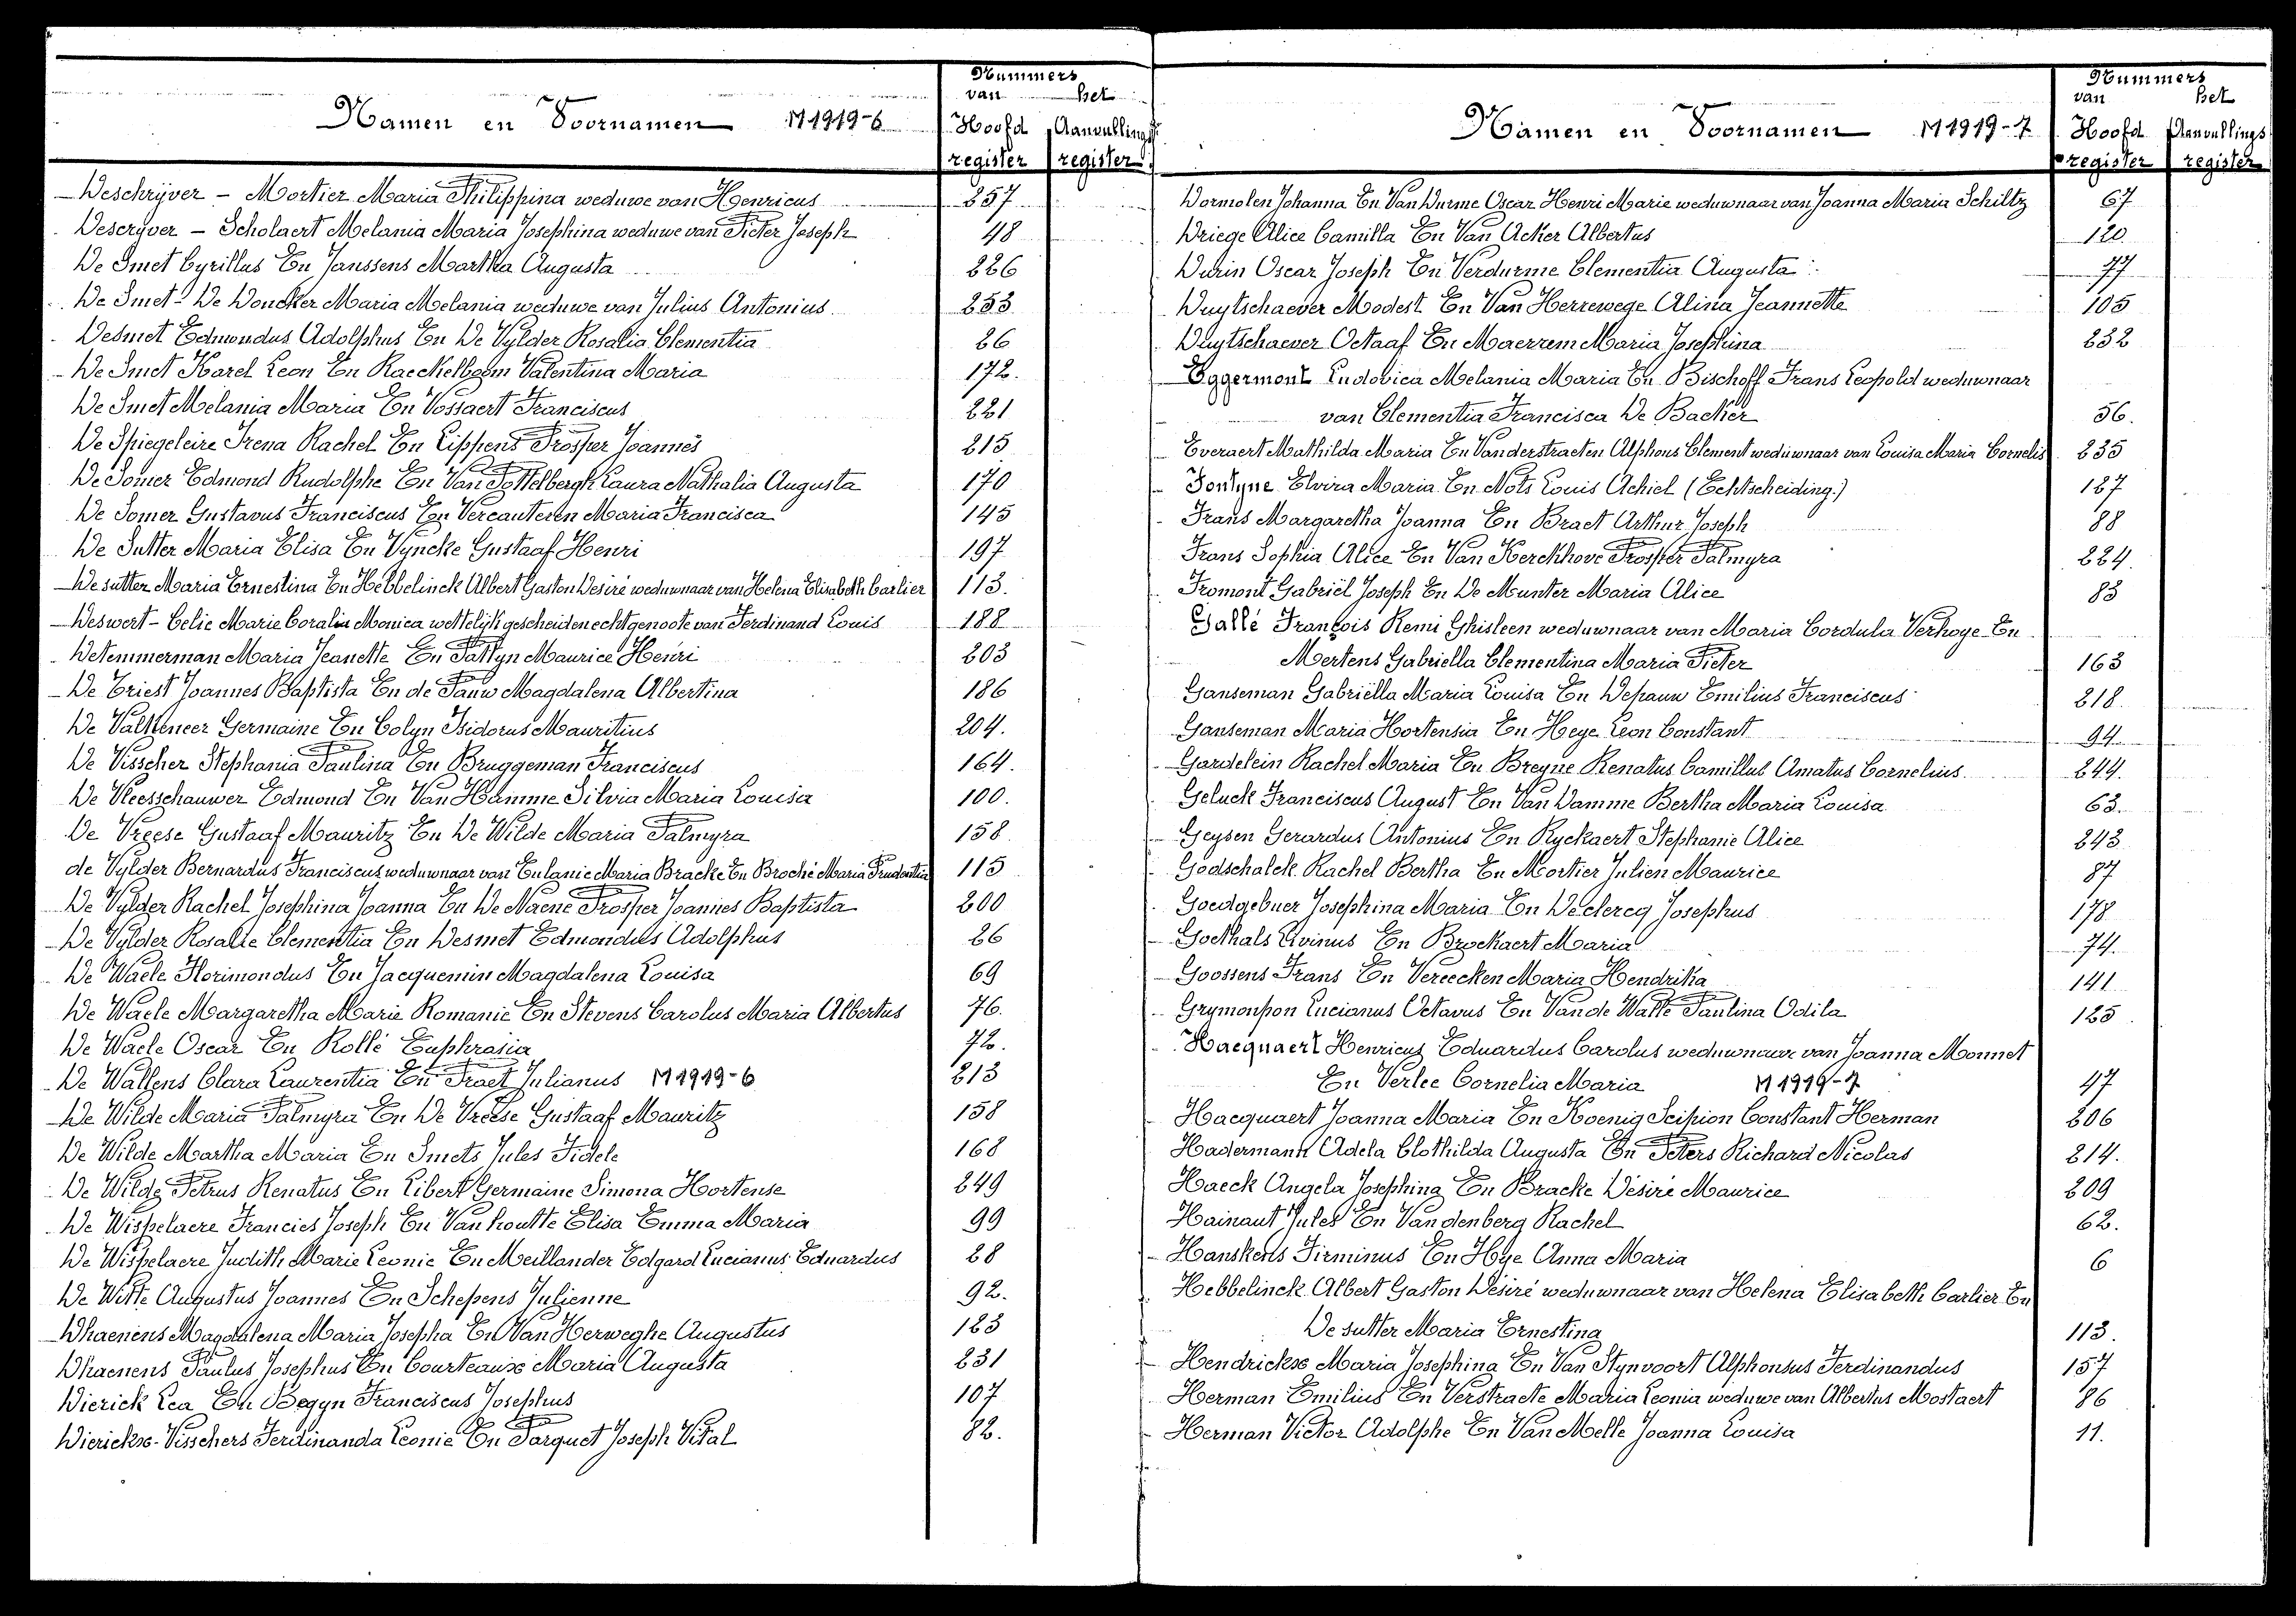 Nummers
van het
Namen en Voornamen M1919-6 Hoofd Aanvullings
register register
Deschrijver - Mortier Maria Philippina weduwe van Henricus 257
Descryver - Scholaert Melania Maria Josephina weduwe van Pieter Joseph 48
De Smet Cyrillus En Janssens Martha Augusta 226
De Smet - De Doncker Maria Melania weduwe van Julius Antonius 253
Desmet Edmondus Adolphus En De Vylder Rosalia Clementia 26
De Smet Karel Leon En Raeckelboom Valentina Maria 172.
De Smet Melania Maria En Vossaert Franciscus 221
De Spiegeleire Irena Rachel En Lippens Prosper Joannes 215
De Somer Edmond Rudolphe En Van Pottelbergh Laura Nathalia Augusta 170
De Somer Gustavus Franciscus En Vercauteren Maria Francisca 145
De Sutter Maria Elisa En Vyncke Gustaaf Henri 197
De sutter Maria Ernestina En Hebbelinck Albert Gaston Desiré weduwnaar van Helena Elisabeth Carlier 113.
Deswert - Celie Marie Coralie Monica wettelijk gescheiden echtgenoote van Ferdinand Louis 188
Detemmerman Maria Jeanette En Pattyn Maurice Henri 203
De Triest Joannes Baptista En de Pauw Magdalena Albertina 186
De Valkeneer Germaine En Colyn Isidorus Mauritius 204.
De Visscher Stephania Paulina En Bruggeman Franciscus 164.
De Vleesschauwer Edmond En Van Hamme Silvia Maria Louisa 100.
De Vreese Gustaaf Mauritz En De Wilde Maria Palmyra 158
de Vylder Bernardus Franciscus weduwnaar van Eulanie Maria Bracke En Broché Maria Prudentia 115
De Vylder Rachel Josephina Joanna En De Naene Prosper Joannes Baptista 200
De Vylder Rosalie Clementia En Desmet Edmondus Adolphus 26
De Waele Florimondus En Jacquemin Magdalena Louisa 69
De Waele Margaretha Marie Romanie En Stevens Carolus Maria Albertus 76.
De Waele Oscar En Rollé Euphrasia 72.
De Wallens Clara Laurentia En Praet Julianus M1919-6 213
De Wilde Maria Palmyra En De Vreese Gustaaf Mauritz 158
De Wilde Martha Maria En Smets Jules Fidele 168
De Wilde Petrus Renatus En Libert Germaine Simona Hortense 249
De Wispelaere Francies Joseph En Van houtte Elisa Emma Maria 99
De Wispelaere Judith Marie Leonie En Meillander Edgard Lucianus Eduardus 28
De Witte Augustus Joannes En Schepens Julienne 92.
Dhaenens Magdalena Maria Josepha En Van Herweghe Augustus 123
Dhaenens Paulus Josephus En Courteaux Maria Augusta 231
Dierick Lea En Begyn Franciscus Josephus 107
Dierickx - Visschers Ferdinanda Leonie En Parquet Joseph Vital 82.
Nummers
van het
Namen en Voornamen M1919-7 Hoofd Aanvullings
register register
Dormolen Johanna En Van Durme Oscar Henri Marie weduwnaar van Joanna Maria Schiltz 67
Driege Alice Camilla En Van Acker Albertus 120.
Durin Oscar Joseph En Verdurme Clementia Augusta 77
Duytschaever Modest En Van Herrewege Alina Jeannette 105
Duytschaever Octaaf En Maerrem Maria Josephina 232
Eggermont Ludovica Melania Maria En Bischoff Frans Leopold weduwnaar
van Clementia Francisca De Backer 56.
Everaert Mathilda Maria En Vanderstraeten Alphons Clement weduwnaar van Louisa Maria Cornelis 235
Fontyne Elvira Maria En Nots Louis Achiel (Echtscheiding.) 127
Frans Margaretha Joanna En Braet Arthur Joseph 88
Frans Sophia Alice En Van Kerckhove Prosper Palmyra 224.
Fromont Gabriël Joseph En De Munter Maria Alice 83
Gallé François Remi Ghisleen weduwnaar van Maria Cordula Verhoye En
Mertens Gabriella Clementina Maria Pieter 163
Ganseman Gabriëlla Maria Louisa En Depauw Emilius Franciscus 218.
Ganseman Maria Hortensia En Heye Leon Constant 94.
Gardelein Rachel Maria En Breyne Renatus Camillus Amatus Cornelius 244.
Geluck Franciscus August En Van Damme Bertha Maria Louisa 63.
Geysen Gerardus Antonius En Ryckaert Stephanie Alice 243
Godschalck Rachel Bertha En Mortier Julien Maurice 87
Goedgebuer Josephina Maria En Declercq Josephus 178
Goethals Livinus En Brockaert Maria 74.
Goossens Frans En Vereecken Maria Hendrika 141
Grymonpon Lucianus Octavus En Van de Walle Paulina Odila 125
Hacquaert Henricus Eduardus Carolus weduwnaar van Joanna Monnet
En Verlee Cornelia Maria M1919-7 47
Hacquaert Joanna Maria En Koenig Scipion Constant Herman 206
Hadermann Adela Clothilda Augusta En Peters Richard Nicolas 214.
Haeck Angela Josephina En Bracke Désiré Maurice 209
Hainaut Jules En Vandenberg Rachel 62.
Hanskens Firminus En Hye Anna Maria 6
Hebbelinck Albert Gaston Désiré weduwnaar van Helena Elisabeth Carlier En
De sutter Maria Ernestina 113.
Hendrickx Maria Josephina En Van Stynvoort Alphonsus Ferdinandus 157
Herman Emilius En Verstraete Maria Leonia weduwe van Albertus Mostaert 86
Herman Victor Adolphe En Van Melle Joanna Louisa 11.